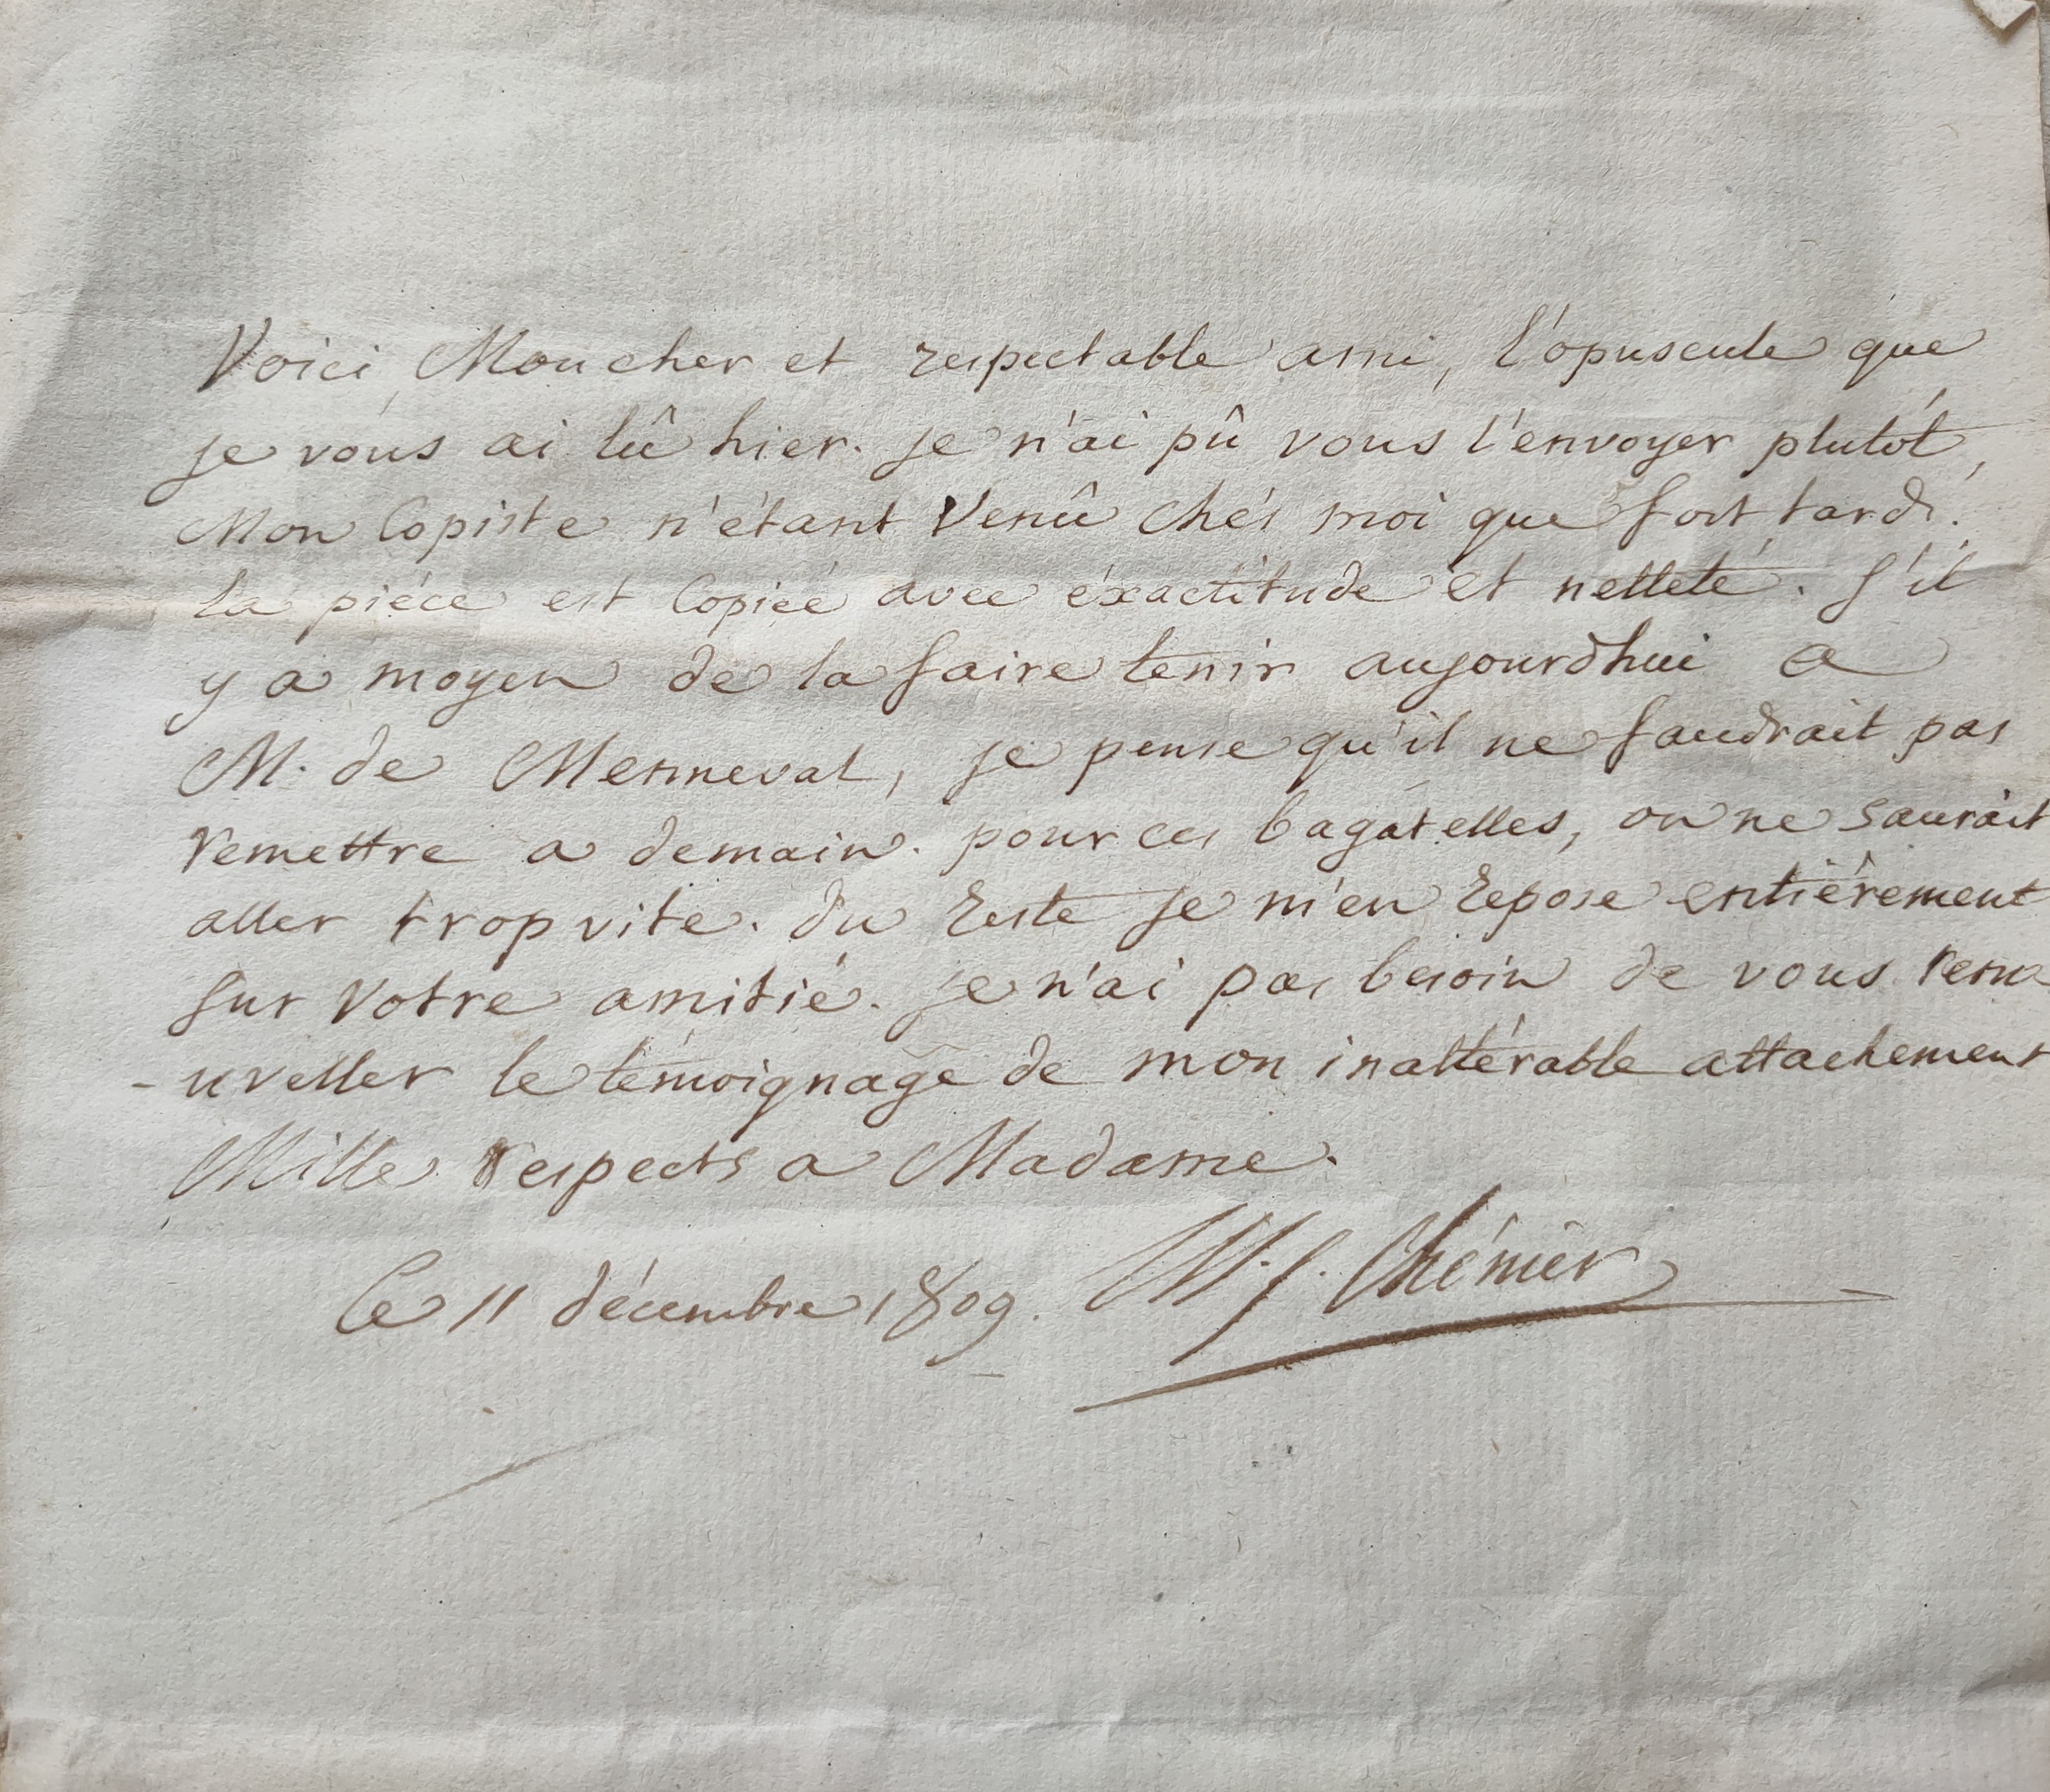 Voici, Mon cher et respectable ami, l'opuscule que
je vous ai lû hier. je n'ai pû vous l'envoyer plutôt,
Mon Copiste n'étant venû chés moi que fort tard.
la piéce est Copiée avec éxactitude et netteté. S'il
y a moyen de la faire tenir aujourdhui a
M. de Menneval, je pense qu'il ne faudrait pas
remettre a demain. pour ces bagatelles, on ne saurait
aller trop vite. du reste je m'en repose entiérement
sur votre amitié. je n'ai pas besoin de vous reno
-uveller le témoignage de mon inaltérable attachement
Mille respects a Madame.
Ce 11 décembre 1809. M. J. Chénier